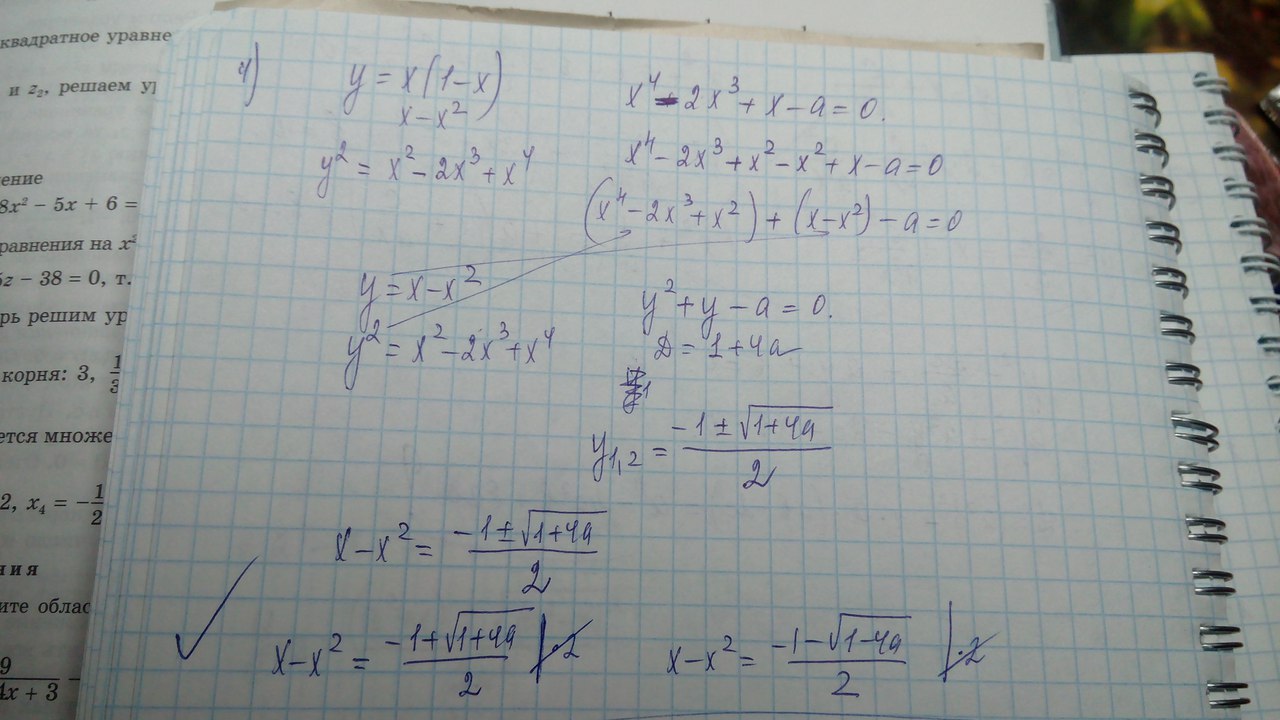 квадратное уравне
и z₂, решаем ур
ение
8x² − 5x + 6 =
равнения на x²
6z − 38 = 0, т.
рь решим ур
корня: 3, 1/3
ется множе
2, x₄ = −1/2
ния
ите облас
9/(4x + 3) −
4)
y = x(1−x)
x−x²
y² = x² − 2x³ + x⁴
y = x−x²
y² = x² − 2x³ + x⁴
x⁴ − 2x³ + x − a = 0.
x⁴ − 2x³ + x² − x² + x − a = 0
(x⁴ − 2x³ + x²) + (x−x²) − a = 0
y² + y − a = 0.
D = 1 + 4a
y₁,₂ = (−1 ± √(1+4a))/2
x − x² = (−1 ± √(1+4a))/2
x − x² = (−1 + √(1+4a))/2 |·2
x − x² = (−1 − √(1−4a))/2 |·2